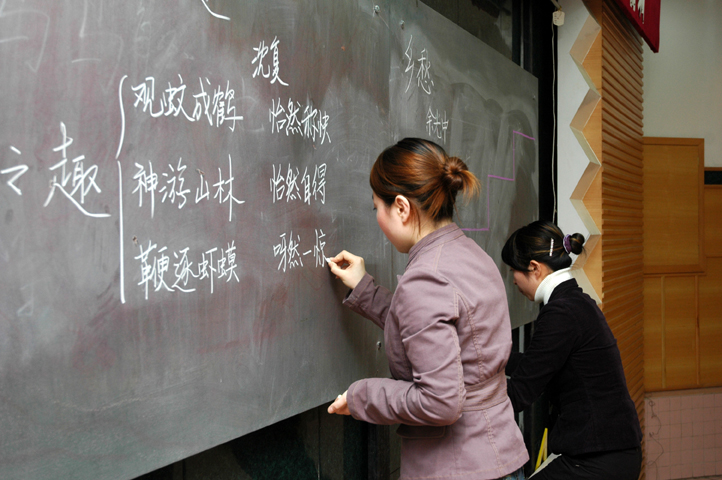 之趣
沈复
观蚊成鹤 怡然称快
神游山林 怡然自得
鞭逐虾蟆 呀然一惊
乡愁
余光中